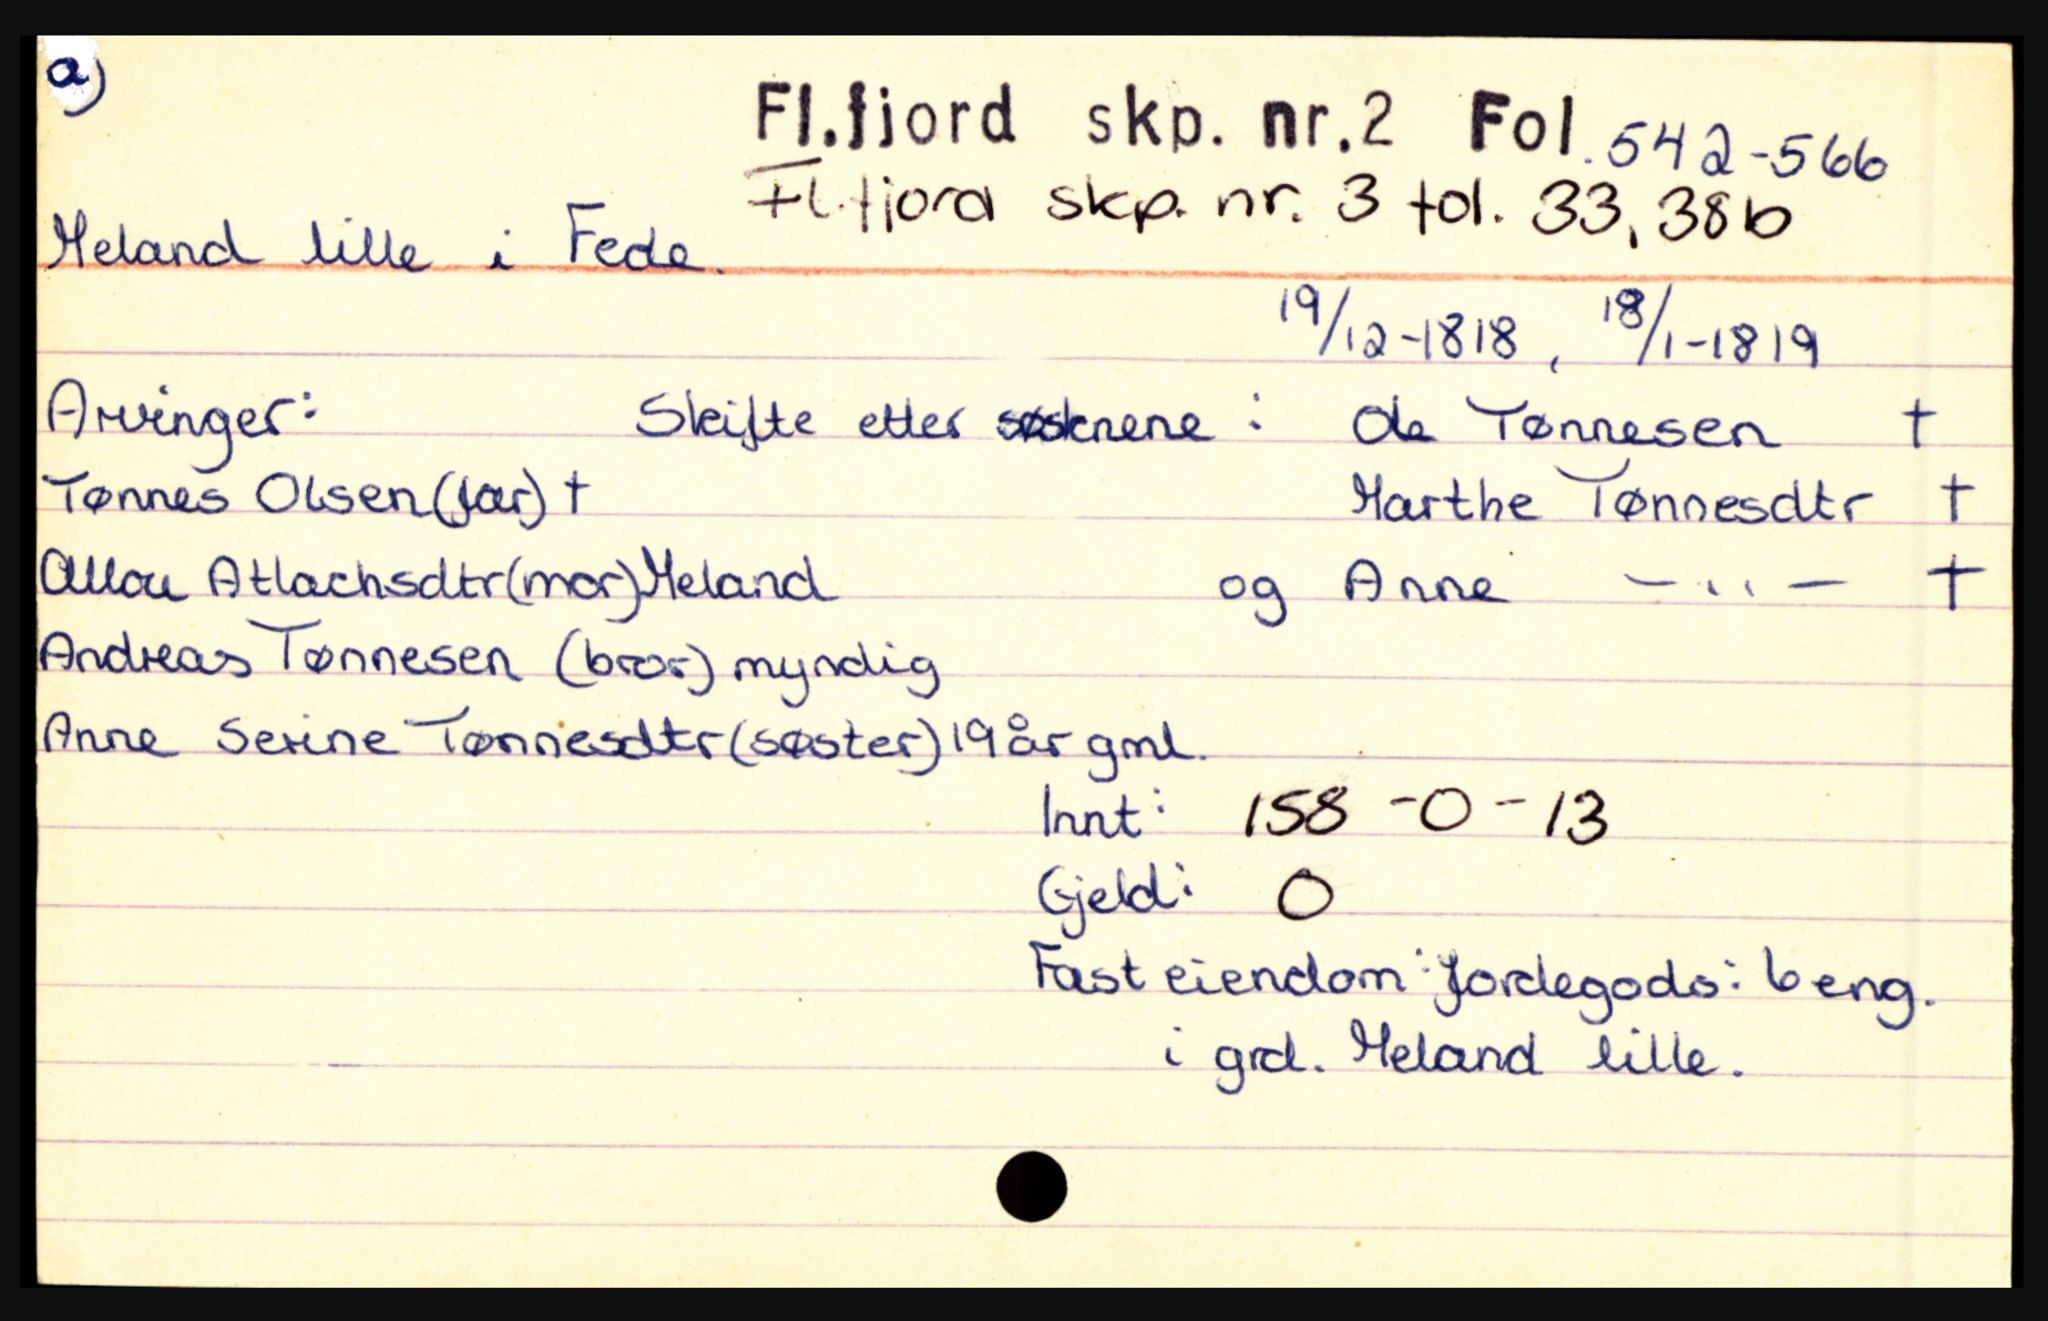 a)
Fl.fjord skp. nr.2 Fol. 542-566
Fl.fjord skp. nr. 3 fol. 33, 38b
Meland lille i Fede.
19/12-1818, 18/1-1819
Arvinger: Skifte etter søsknene: Ole Tønnesen †
Tønnes Olsen (far) † Marthe Tønnesdtr †
Atlachsdtr (mor) Meland og Anne —〃— †
Andreas Tønnesen (bror) myndig
Anne Serine Tønnesdtr (søster) 19 år gml.
Innt: 158 - 0 - 13
Gjeld: 0
Fast eiendom: Jordegods: 6 eng.
i grd. Meland lille.